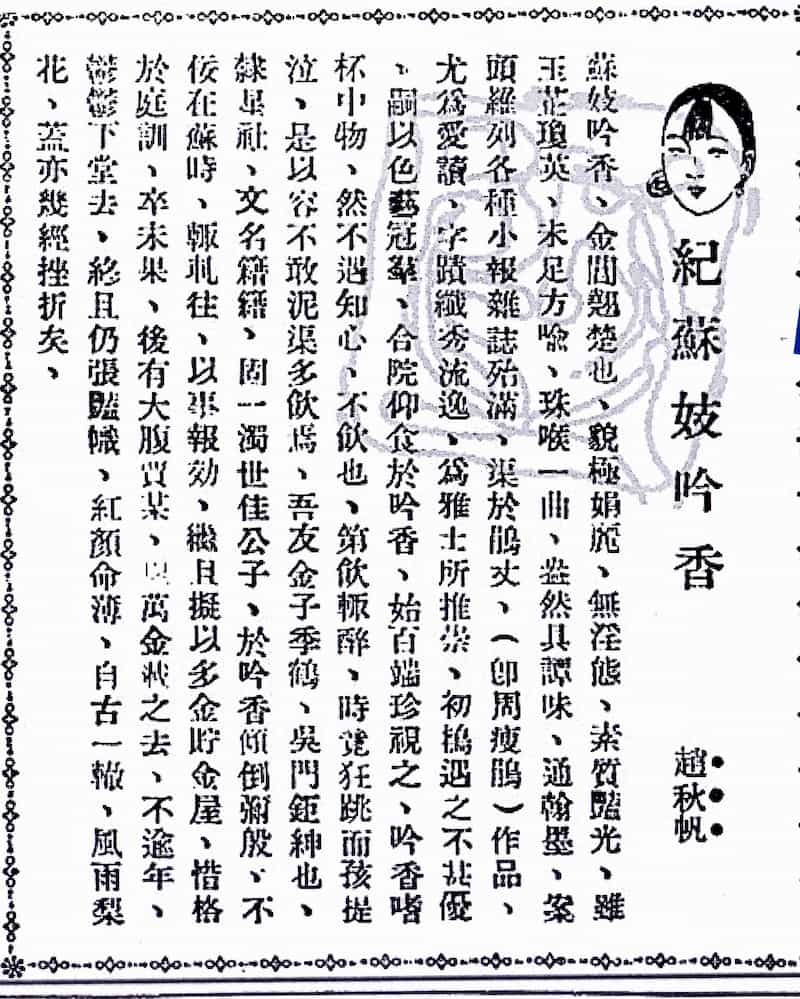 紀蘇妓吟香
趙秋帆
蘇妓吟香、金閶翹楚也、貌極娟麗、無淫態、素質豔光、雖
玉芷瓊英、未足方喩、珠喉一曲、盎然具譚味、通翰墨、案
頭羅列各種小報雜誌殆滿、渠於鵑丈、(卽周瘦鵑)作品、
尤爲愛讀、字蹟纖秀流逸、爲雅士所推崇、初搗遇之不甚優
、嗣以色藝冠羣、合院仰食於吟香、始百端珍視之、吟香嗜
杯中物、然不遇知心、不飮也、第飮輒醉、時竟狂跳而孩提
泣、是以容不敢泥渠多飮焉、吾友金子季鶴、吳門鉅紳也、
隸星社、文名籍籍、固一濁世佳公子、於吟香傾倒彌殷、不
佞在蘇時、輒軋往、以事報効、繼且擬以多金貯金屋、惜格
於庭訓、卒未果、後有大腹賈某、以萬金裁之去、不逾年、
鬱鬱下堂去、終且仍張豔幟、紅顏命薄、自古一轍、風雨梨
花、蓋亦幾經挫折矣、